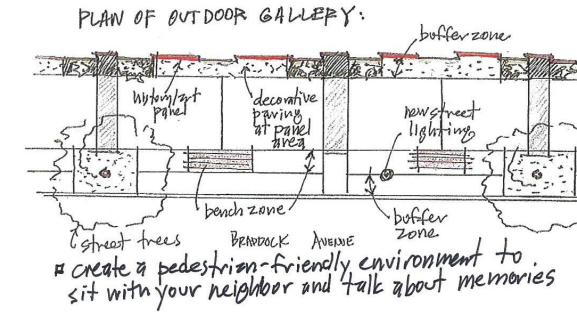 PLAN OF OUTDOOR GALLERY:
buffer zone
history/art
panel
decorative
paving
at panel
area
new street
lighting
bench zone
buffer
zone
street trees
BRADDOCK AVENUE
create a pedestrian-friendly environment to
sit with your neighbor and talk about memories